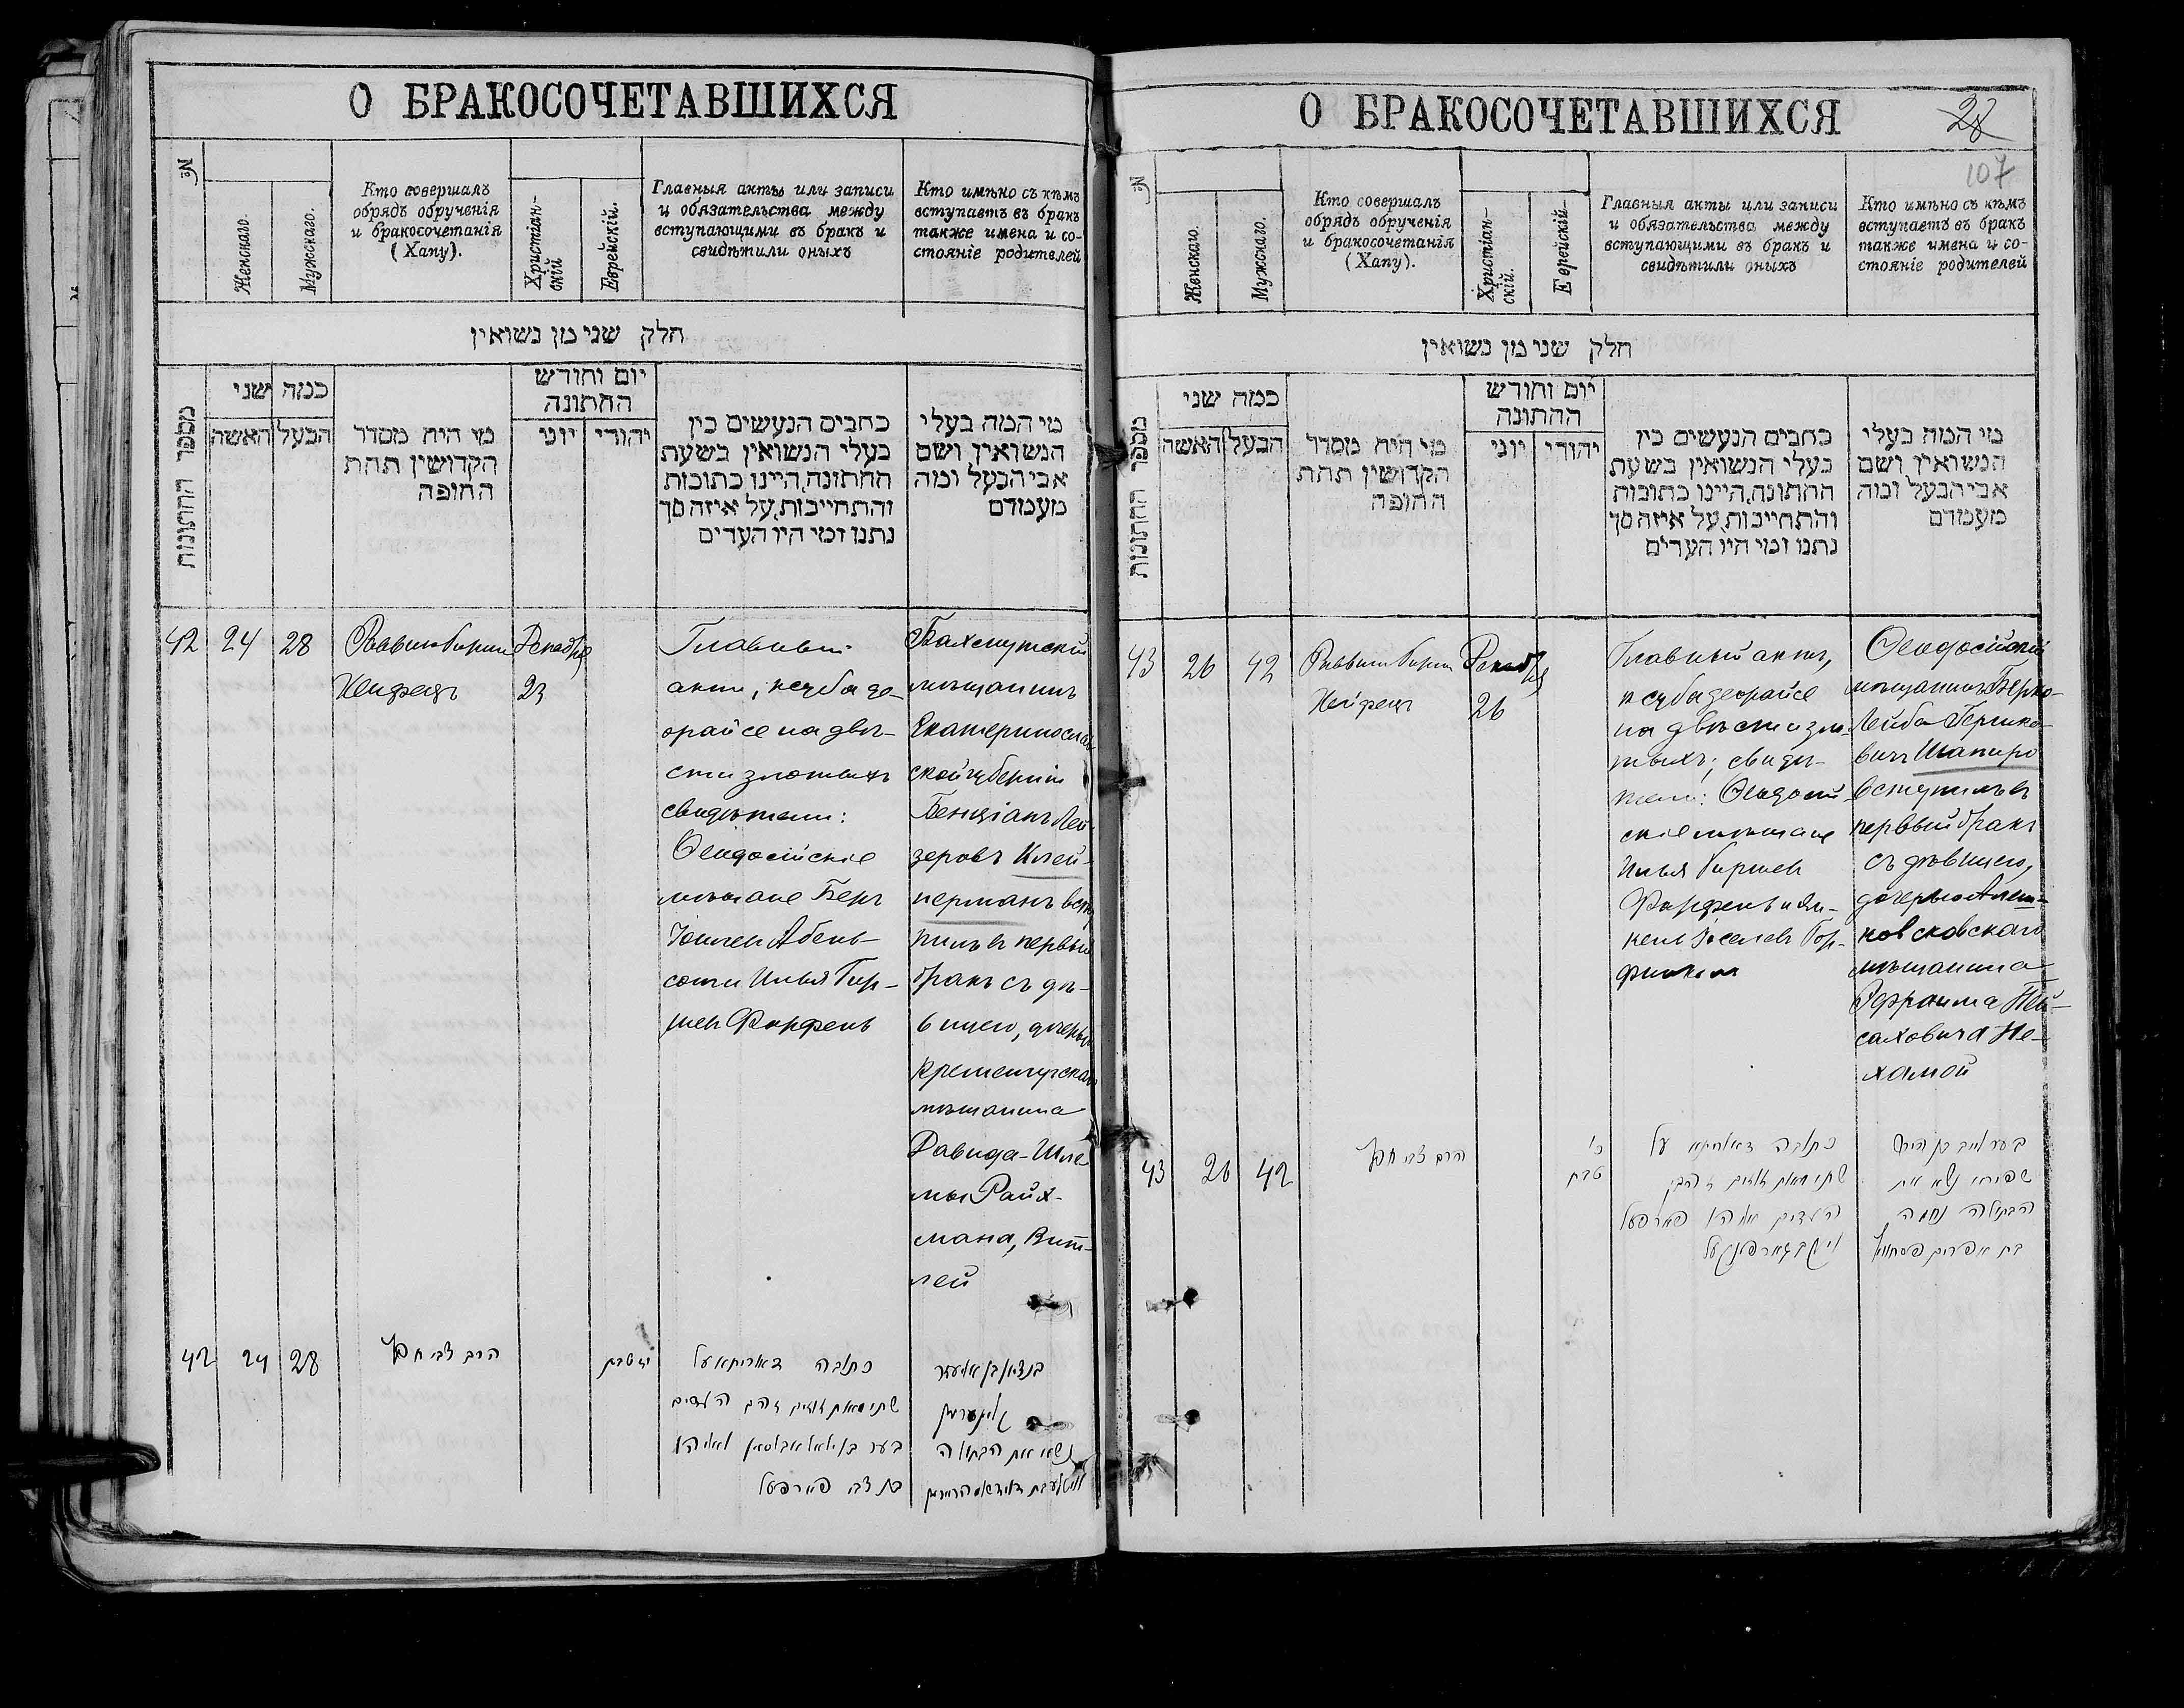 О БРАКОСОЧЕТАВШИХСЯ
№
Женскаго.
Мужскаго.
Кто совершалъ
обрядъ обрученія
и бракосочетанія
(Хапу).
Христіан-
скій
Еврейскій.
Главныя акты или записи
и обязательства между
вступающими въ бракъ и
свидѣтили оныхъ
Кто имѣно съ кѣмъ
вступаетъ въ бракъ
также имена и со-
стояніе родителей
חלק שני מן נשואין
מספר החתונות
כמה שני
הבעל האשה
מי היה מסדר
הקדושין תחת
החופה
יום וחודש
החתונה
יהודי יוני
כתבים הנעשים בין
בעלי הנשואין בשעת
החתונה, היינו כתובות
והתחייבות, על איזה סך
נתנו ומי היו העדים
מי המה בעלי
הנשואין ושם
אבי הבעל ומה
מעמדם
42 24 28
Раввинъ Гирш
Хейфецъ
Декабря
23
Главный
актъ, ксуба де-
орайсе на двѣ-
сти злотыхъ
свидѣтели:
Ѳеодосійскіе
мѣщане Беръ
Абель-
сонъ и Илья Гир-
шев
Бахмутскій
мѣщанинъ
Екатеринослав
ской губерніи
Бенціанъ Лей-
зеровъ Клей-
нерманъ всту
пилъ въ первый
бракъ съ дѣ-
вицею, дочерью
Кременчугскаго
мѣщанина
Давида-Шле-
мы Райх-
мана, Вит-
лей
42 24 28
הרב צבי חפץ
טבת
כתובה דאוריתא על
שתי מאות זוזים והעדים
נשא את הבתולה
О БРАКОСОЧЕТАВШИХСЯ
28
107
№
Женскаго.
Мужскаго.
Кто совершалъ
обрядъ обрученія
и бракосочетанія
(Хапу).
Христіан-
скій.
Еврейскій
Главныя акты или записи
и обязательства между
вступающими въ бракъ и
свидѣтили оныхъ
Кто имѣно съ кѣмъ
вступаетъ въ бракъ
также имена и со-
стояніе родителей
חלק שני מן נשואין
מספר החתונות
כמה שני
הבעל האשה
מי היה מסדר
הקדושין תחת
החופה
יום וחודש
החתונה
יהודי יוני
כתבים הנעשים בין
בעלי הנשואין בשעת
החתונה, היינו כתובות
והתחייבות, על איזה סך
נתנו ומי היו העדים
מי המה בעלי
הנשואין ושם
אבי הבעל ומה
מעמדם
43 26 42
Раввинъ Гирш
Хейфецъ
Декабря
26
Главный актъ,
ксуба деорайсе
на двѣсти зло-
тыхъ; свидѣ-
тели: Ѳеодосій-
скіе мѣщане
Илья Гиршев
Ѳеодосійскій
мѣщанинъ Берко-
Лейба Гершко-
вичъ Шапиро
вступилъ въ
первый бракъ
съ дѣвицею,
дочерью Алеш-
ковсковскаго
мѣщанина
Эфраима Пей-
саховича Не-
хамой
43 26 42
הרב צבי חפץ
טבת
כתובה דאוריתא על
שתי מאות זוזים
שפירו נשא את
הבתולה נחמה
בת אפרים